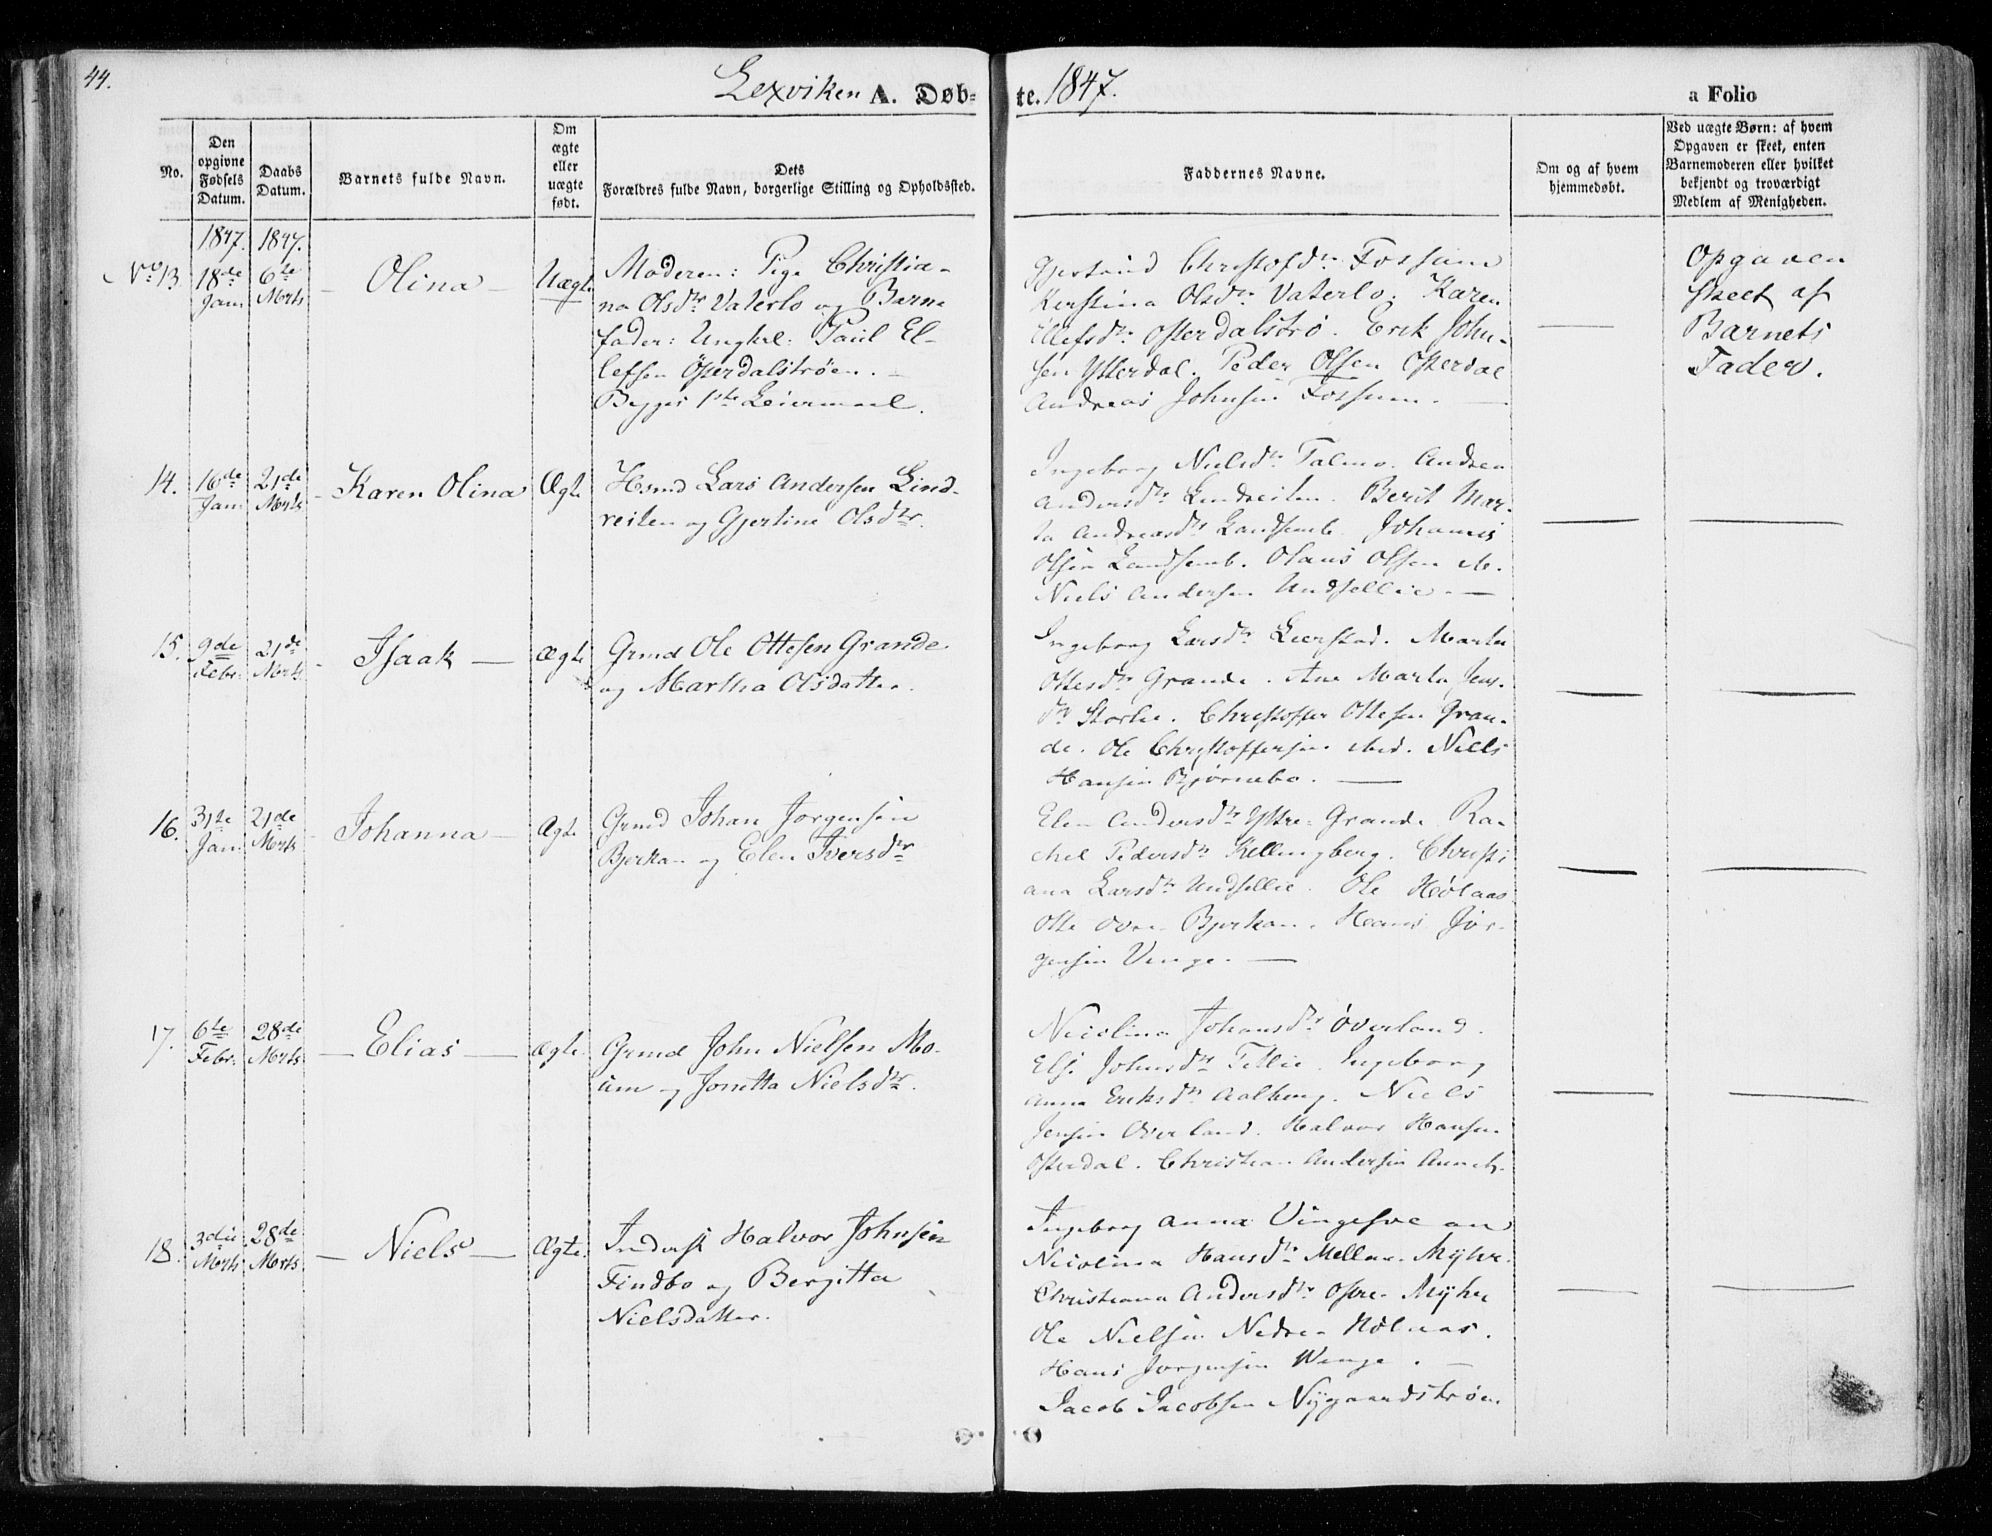 44.
Lexviken A. Døb-
te. 1847.
a Folio
No.
Den
opgivne
Fødsels
Datum.
Daabs
Datum.
Barnets fulde Navn.
Om
ægte
eller
uægte
født.
Dets
Forældres fulde Navn, borgerlige Stilling og Opholdssted.
Faddernes Navne.
Om og af hvem
hjemmedøbt.
Ved uægte Børn: af hvem
Opgaven er skeet, enten
Barnemoderen eller hvilket
bekjendt og troværdigt
Medlem af Menigheden.
1847. 1847.
No 13
18de
Jan
6te
Morts
Olina
Uægte
Moderen: Pige Christia-
na Olsdtr Vaterlo og Barne
fader: Ungkl: Paul El-
lefsen Österdalströen.
Begges 1ste Leiermaal.
Gjertrud Christofdtr Fossum
Kerstina Olsdtr Vaterlo. Karen
Ellefsdtr Osterdalströ. Erik John-
sen Ytterdal. Peder Olsen Osterdal
Andreas Johnsen Fossum.
Opgaven
skeet af
Barnets
Fader.
14.
16de
Jan
21de
Morts
Karen Olina
Ægte
Hsmd Lars Andersen Lind-
reiten og Gjertine Olsdtr.
Ingeborg Nielsdtr Talmo. Andrea
Andersdtr Lindreiten. Berit Mar-
ta Andreasdtr Landsemb. Johannes
Olsen Landsemb. Olaus Olsen
Niels Andersen Undsellie.
15.
9de
Febr.
21de
Morts
Isaak
Ægte
Grmd Ole Ottesen Grande
og Martha Olsdatter.
Ingeborg Larsdtr Leerstad. Marta
Ottesdtr Grande. Ane Marta Jens-
dtr Storlie. Christoffer Ottesen Gran-
de. Ole Christoffersen ibid. Niels
Hansen Bjørnebo.
16.
31te
Jan
21de
Morts
Johanna
Ægte
Grmd Johan Jørgensen
Bjerkan og Elen Iversdtr
Elen Andersdtr Yttre Grande Ra-
chel Pedersdtr Kellingberg. Christi
ana Larsdtr Undsellie. Ole Hølaas
Otte Øvre Bjerkan. Hans Jør-
gensen Venge.
17.
6te
Febr.
28de
Morts
Elias
Ægte.
Grmd John Nielsen Mo-
um og Jonetta Nielsdtr.
Nicolina Johansdtr Øverland.
Els. Johnsdtr Tellie. Ingeborg
Anna Eriksdtr Aalberg. Niels
Jensen Øverland. Halvor Hansen
Osterdal. Christian Andersen
18.
3die
Morts
28de
Morts
Niels
Ægte.
Inderst Halvor Johnsen
Findbo og Bergitta
Nielsdatter.
Ingeborg Anna
Nicolina Hansdtr Mellem Myhr.
Christiana Andersdtr Østre Myhr
Ole Nielsen Nedre Hølaas.
Hans Jørgensen Wenge.
Jacob Jacobsen Nygaardstrøen